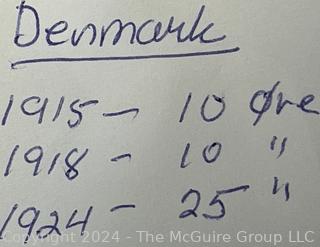 Denmark
1915 - 10 Øre
1918 - 10 "
1924 - 25 "
Copyright 2024 - The McGuire Group LLC